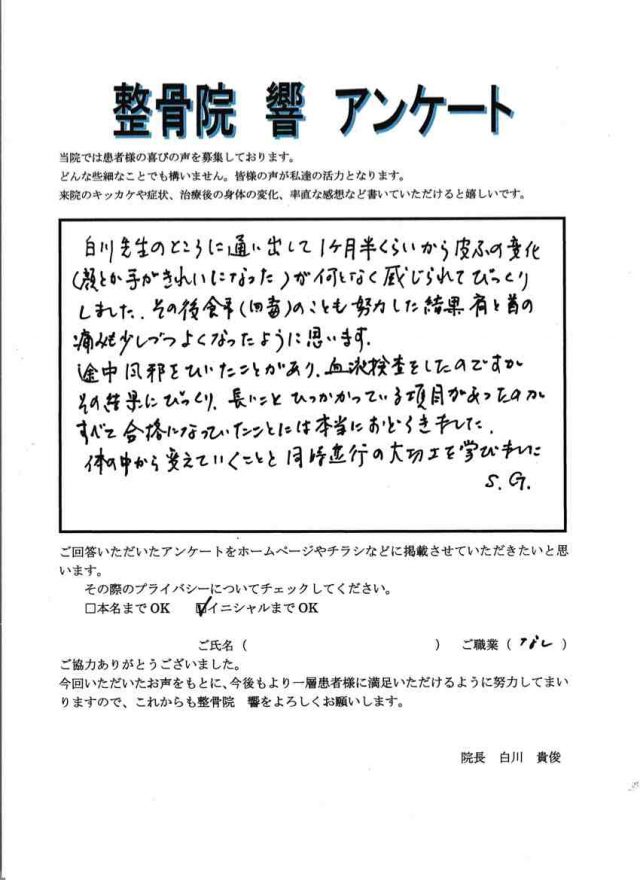 整骨院 響 アンケート
当院では患者様の喜びの声を募集しております。
どんな些細なことでも構いません。皆様の声が私達の活力となります。
来院のキッカケや症状、治療後の身体の変化、率直な感想など書いていただけると嬉しいです。
白川先生のところに通い出して1ヶ月半くらいから皮ふの変化
(顔とか手がきれいになった)が何となく感じられてびっくり
しました。その後食事(四毒)のことも努力した結果肩と首の
痛みも少しづつよくなったように思います。
途中風邪をひいたことがあり、血液検査をしたのですが
その結果にびっくり、長いことひっかかっている項目があったのが
すべて合格になっていたことには本当におどろきました。
体の中から変えていくことと同時進行の大切さを学びました
S.G.
ご回答いただいたアンケートをホームページやチラシなどに掲載させていただきたいと思
います。
その際のプライバシーについてチェックしてください。
□本名まで OK ☑イニシャルまで OK
ご氏名（ ） ご職業（なし）
ご協力ありがとうございました。
今回いただいたお声をもとに、今後もより一層患者様に満足いただけるように努力してまい
りますので、これからも整骨院 響をよろしくお願いします。
院長 白川 貴俊